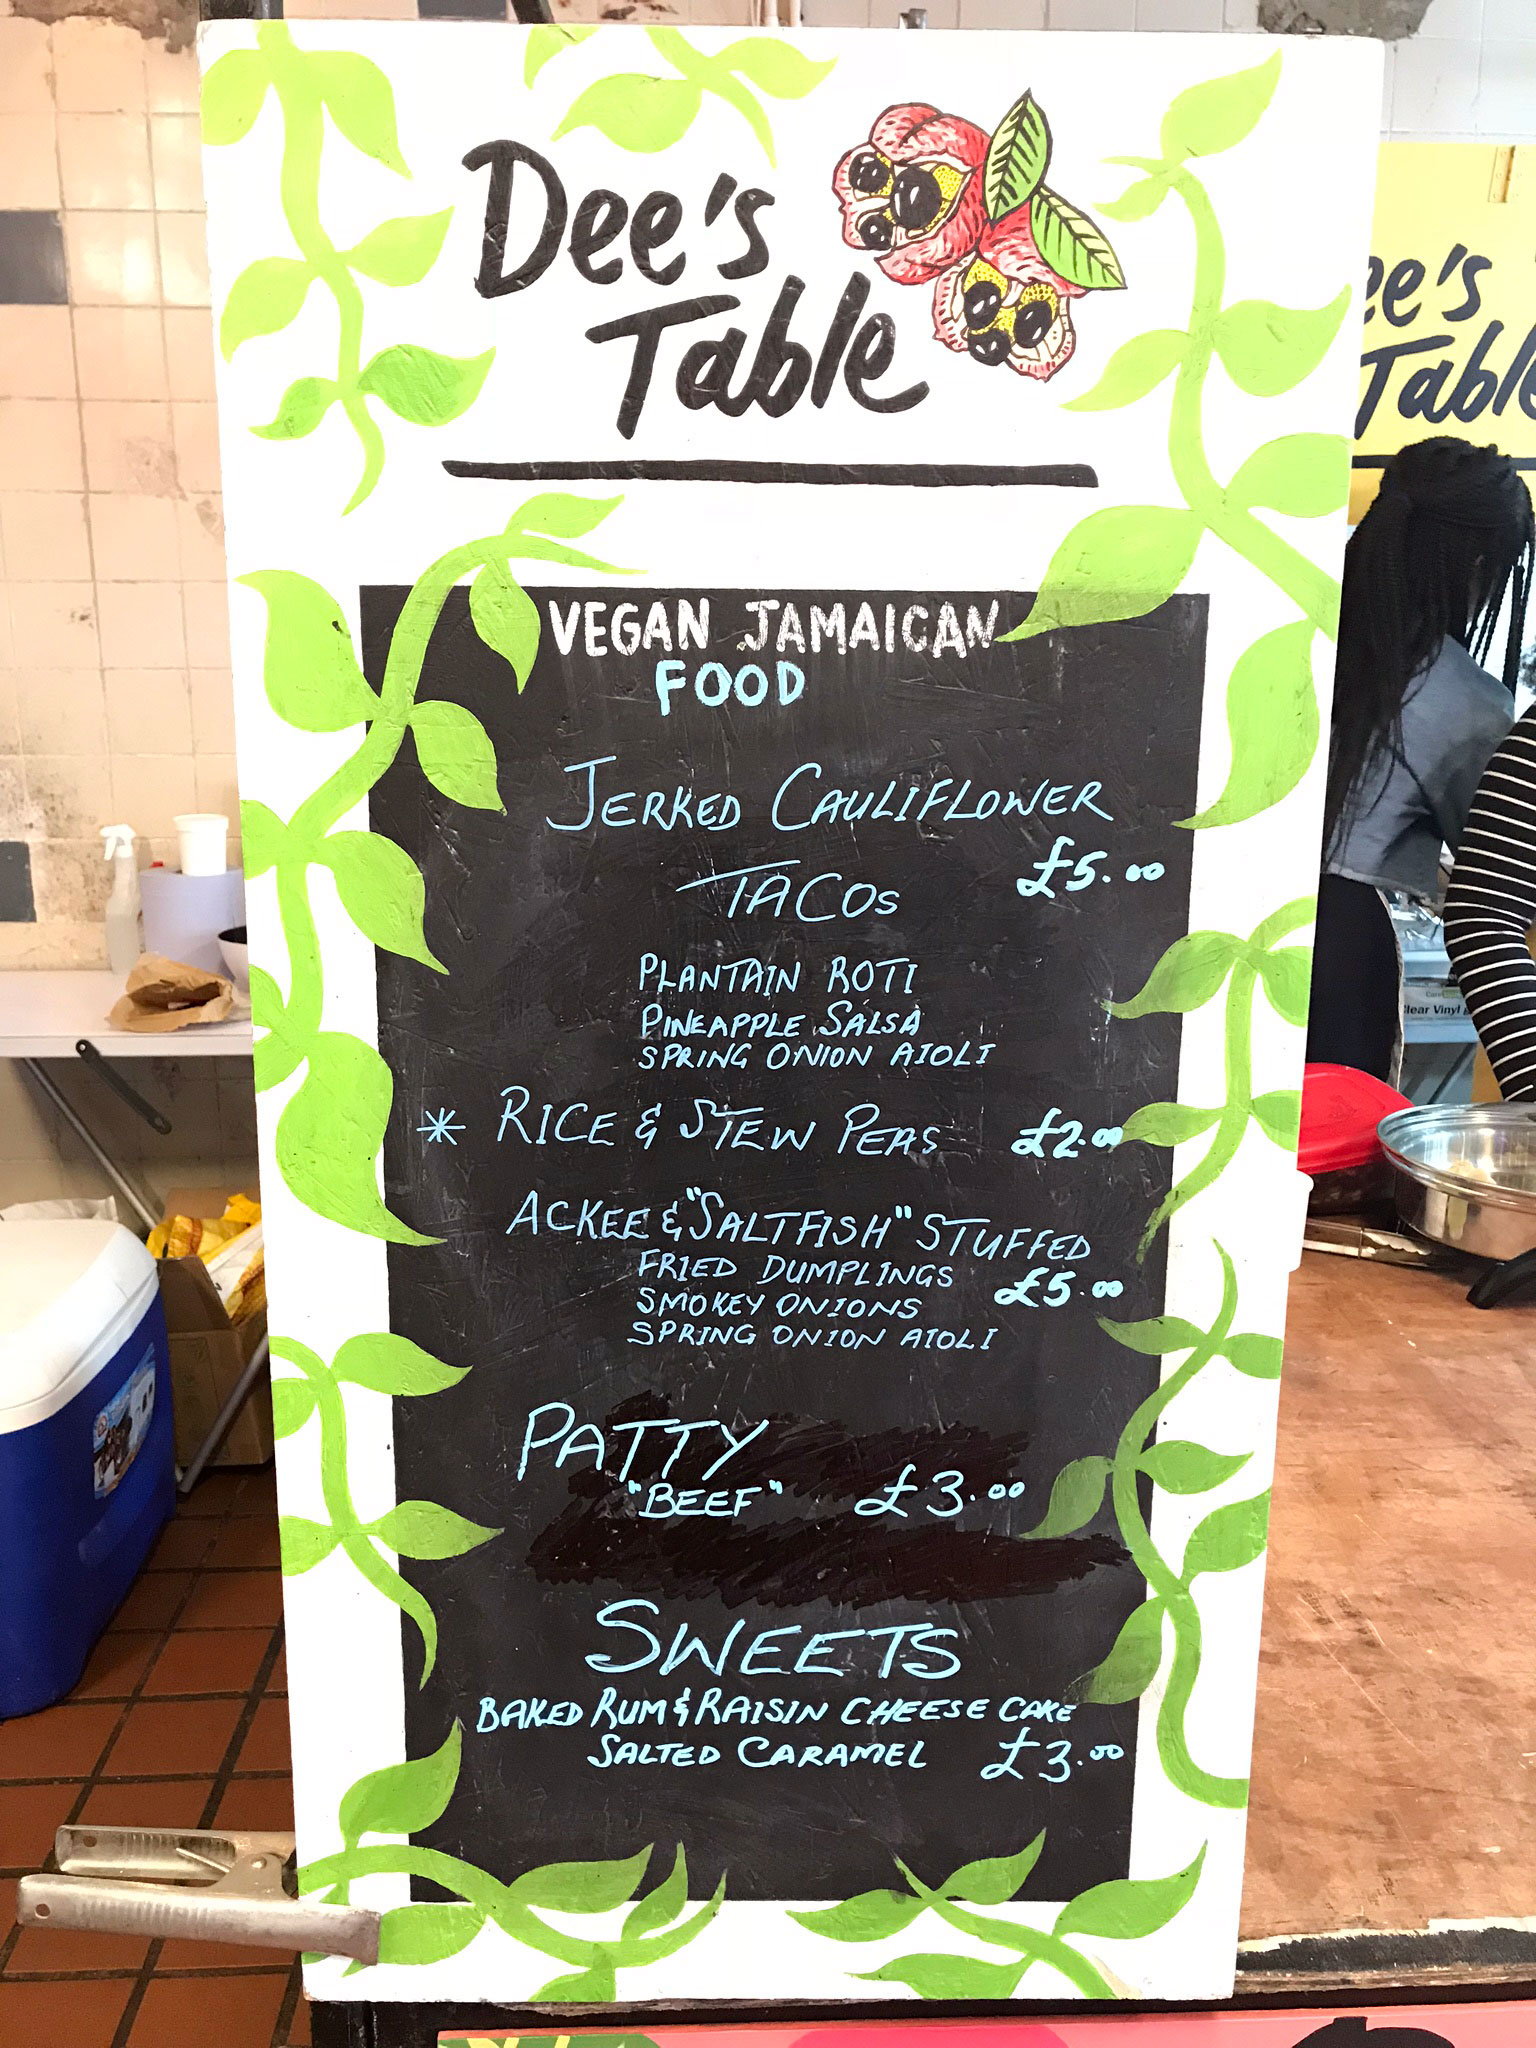 Dee's
Table
VEGAN JAMAICAN
FOOD
JERKED CAULIFLOWER
£5.00
TACOS
PLANTAIN ROTI
PINEAPPLE SALSA
SPRING ONION AIOLI
* RICE & STEW PEAS £2.00
ACKEE & "SALTFISH" STUFFED
FRIED DUMPLINGS £5.00
SMOKEY ONIONS
SPRING ONION AIOLI
PATTY
"BEEF" £3.00
SWEETS
BAKED RUM & RAISIN CHEESE CAKE
SALTED CARAMEL £3.00
ee's
Table
Clear Vinyl